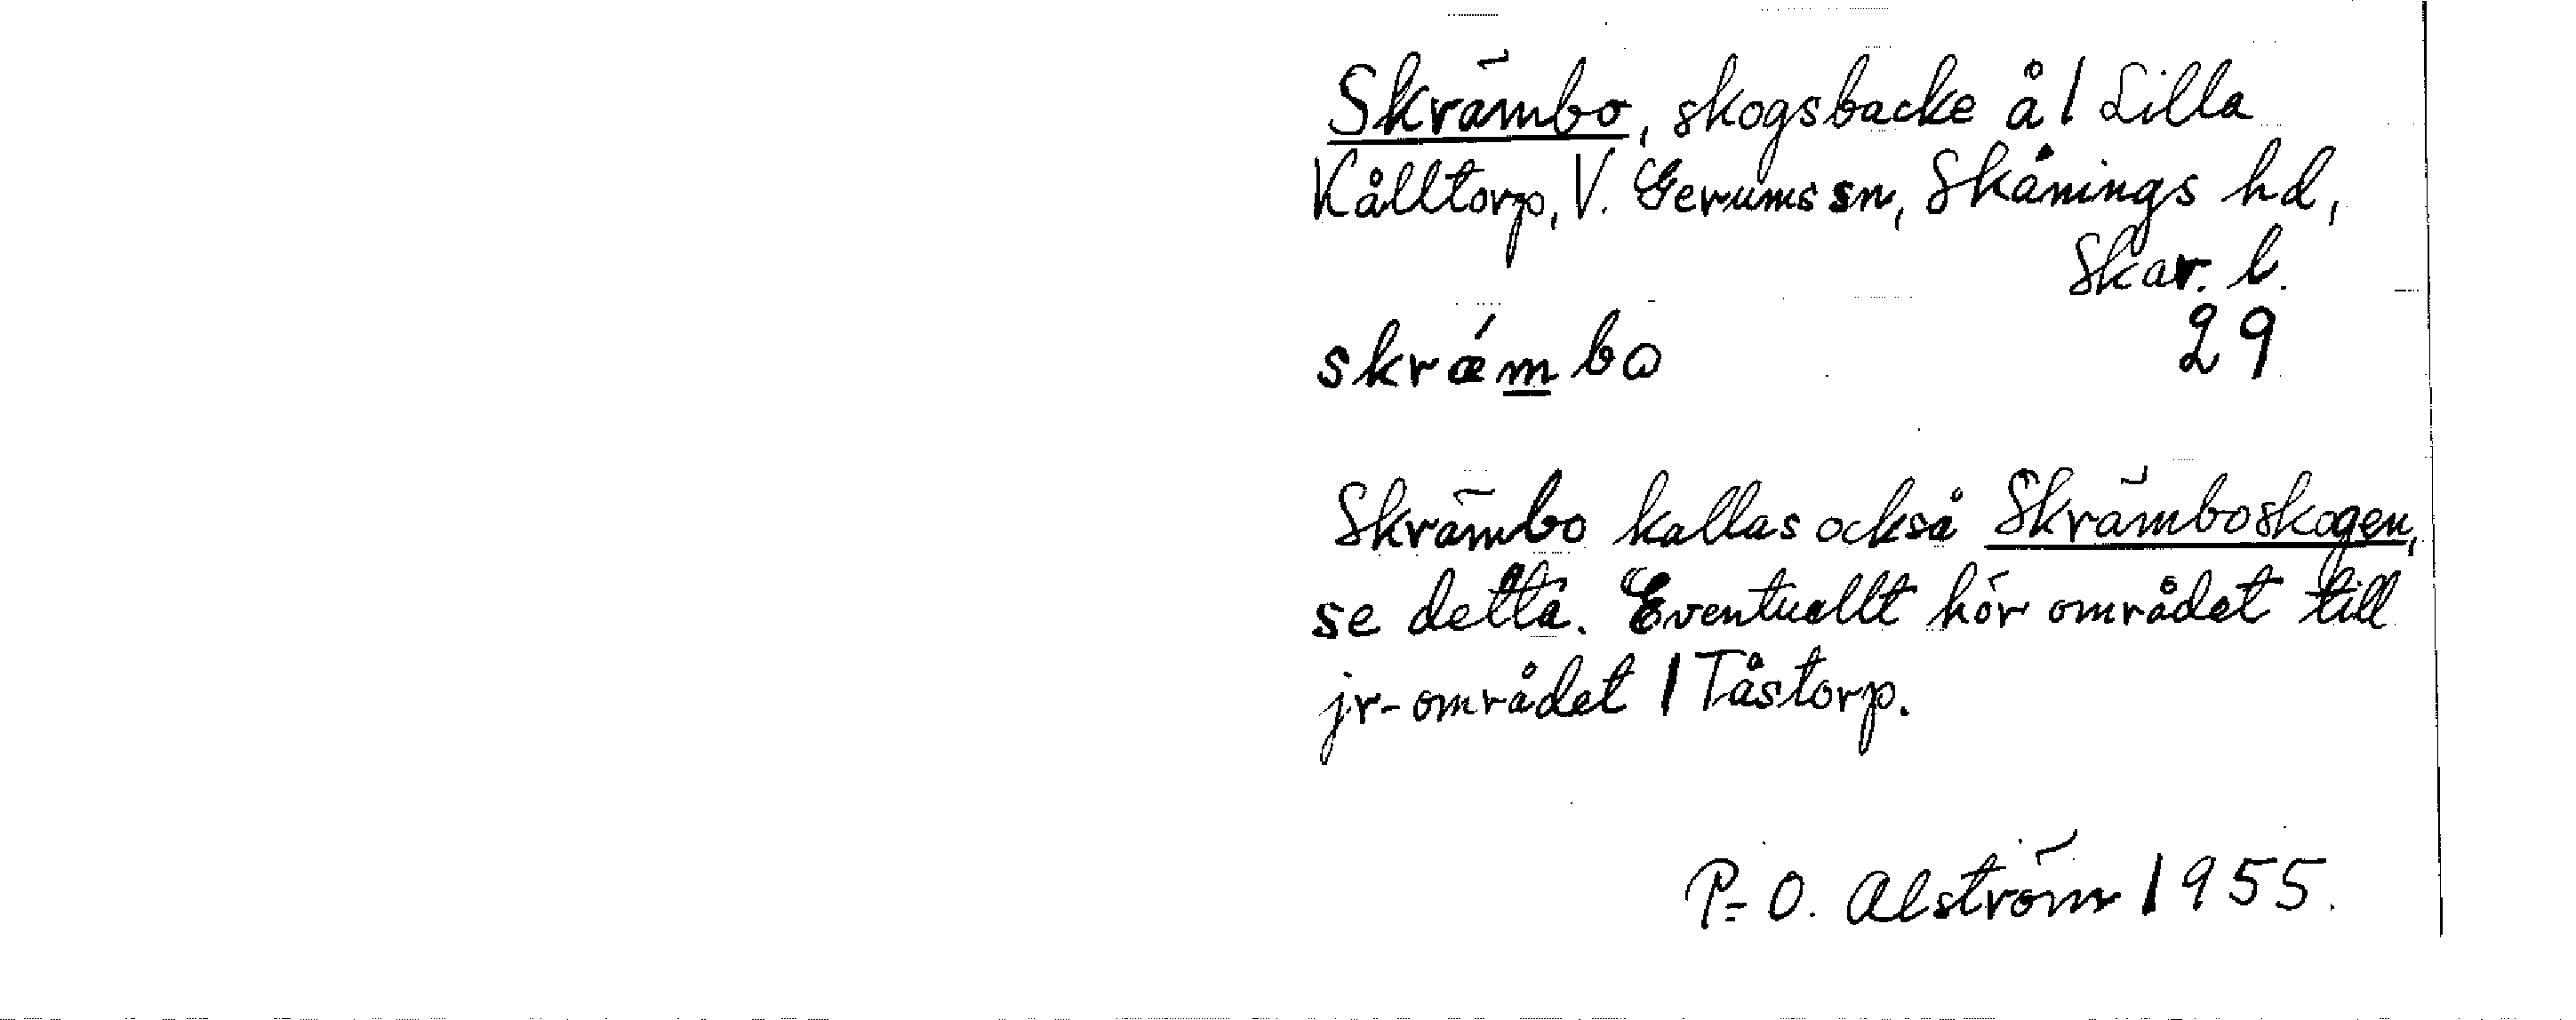 Skrämbo, skogsbacke å 1 Lilla
Kålltorp, V. Gerums sn, Skånings hd,
Skar. l.
skrǽmbo 29
Skrämbo kallas också Skrämboskogen,
se detta. Eventuellt hör området till
jr-området 1 Tåstorp.
P-O. Alström 1955.